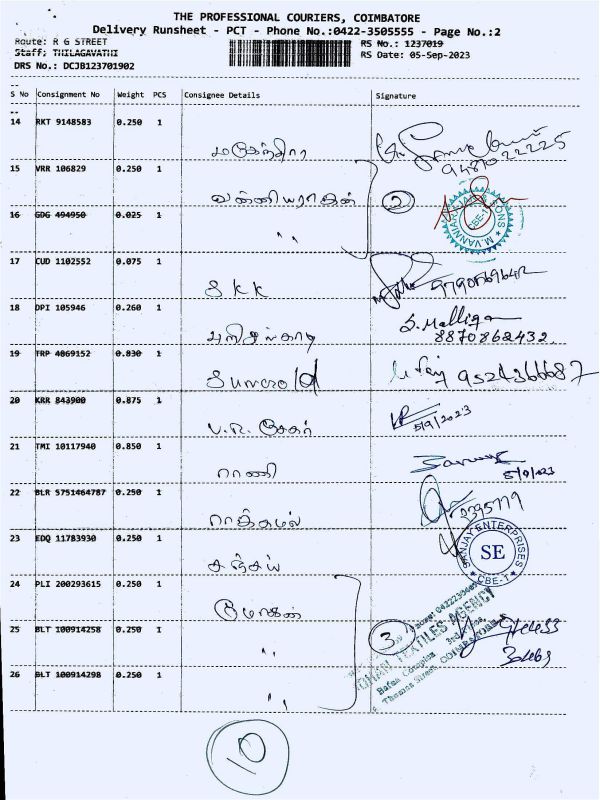 THE PROFESSIONAL COURIERS, COIMBATORE
Delivery Runsheet - PCT - Phone No.:0422-3505555 - Page No.:2
Route: R G STREET
RS No.: 1237019
Staff: THILAGAVATHI
RS Date: 05-Sep-2023
DRS No.: DCJB123701902
S No Consignment No Weight PCS Consignee Details Signature
14 RKT 9148583 0.250 1
மகேந்திரா
9487022225
15 VRR 106829 0.250 1
வன்னியராஜன் 2
16 GDG 494950 0.025 1
" CBE-1
17 CUD 1102552 0.075 1
S K K 9790569642
18 DPI 105946 0.260 1
S. Malliga
8870862432
19 TRP 4869152 0.830 1
Suncrold 9524366687
20 KRR 843900 0.875 1
V.R. சேகர் 5/9/2023
21 TMI 10117940 0.850 1
ராணி
22 BLR 5751464787 0.250 1
23 EDQ 11783930 0.250 1
சஞ்சய்
SANJAY ENTERPRISES
SE
CBE-1
24 PLI 200293615 0.250 1
மோகன்
25 BLT 100914258 0.250 1
" 3
26 BLT 100914298 0.250 1
"
MOHAN TEXTILES AGENCY
Bafna Complex 3rd Floor,
Thomas Street COIMBATORE
10